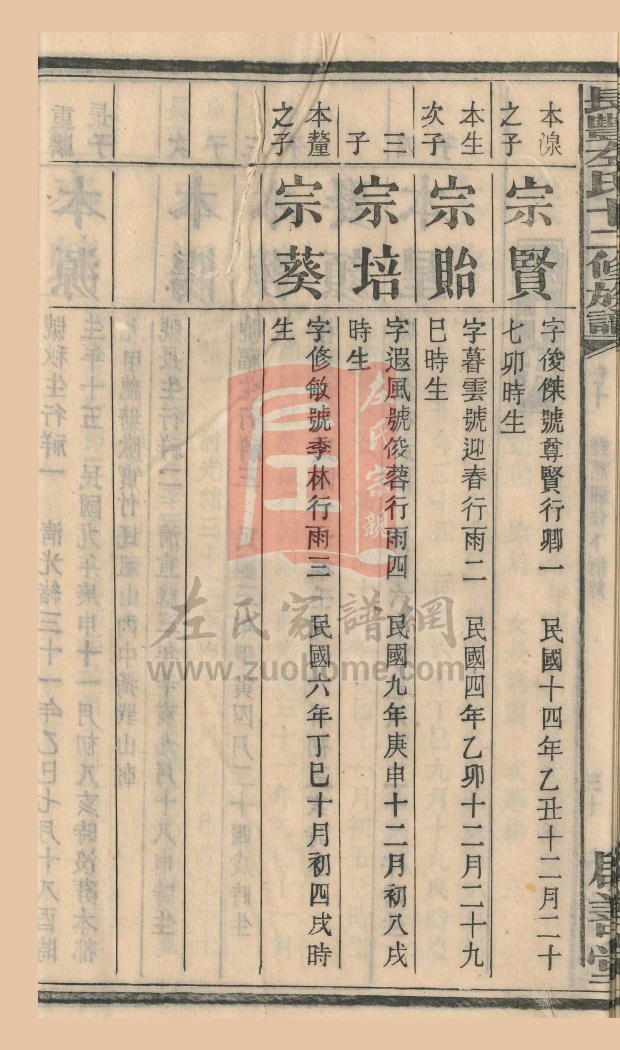 長豐左氏十二修族譜
本湶之子
宗賢
字俊傑號尊賢行卿一　民國十四年乙丑十二月二十
七卯時生
本生次子
宗貽
字暮雲號迎春行雨二　民國四年乙卯十二月二十九
巳時生
三子
宗培
字遐風號俊蓉行雨四　民國九年庚申十二月初八戌
時生
本釐之子
宗葵
字修敏號季林行雨三　民國六年丁巳十月初四戌時
生
左氏宗親
左氏家譜網
www.zuohome.com